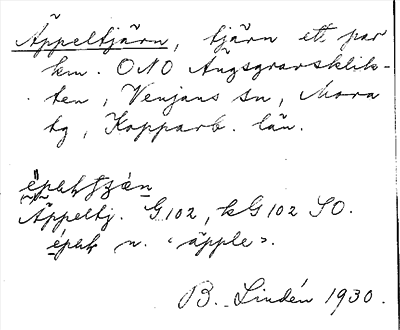 Äppeltjärn, tjärn ett par
km. ONO Ängsgravsklit-
ten, Venjans sn, Mora
tg, Kopparb. län.
Äppeltj. G 102, kG 102 SO.
n. "äpple".
B. Lindén 1930.